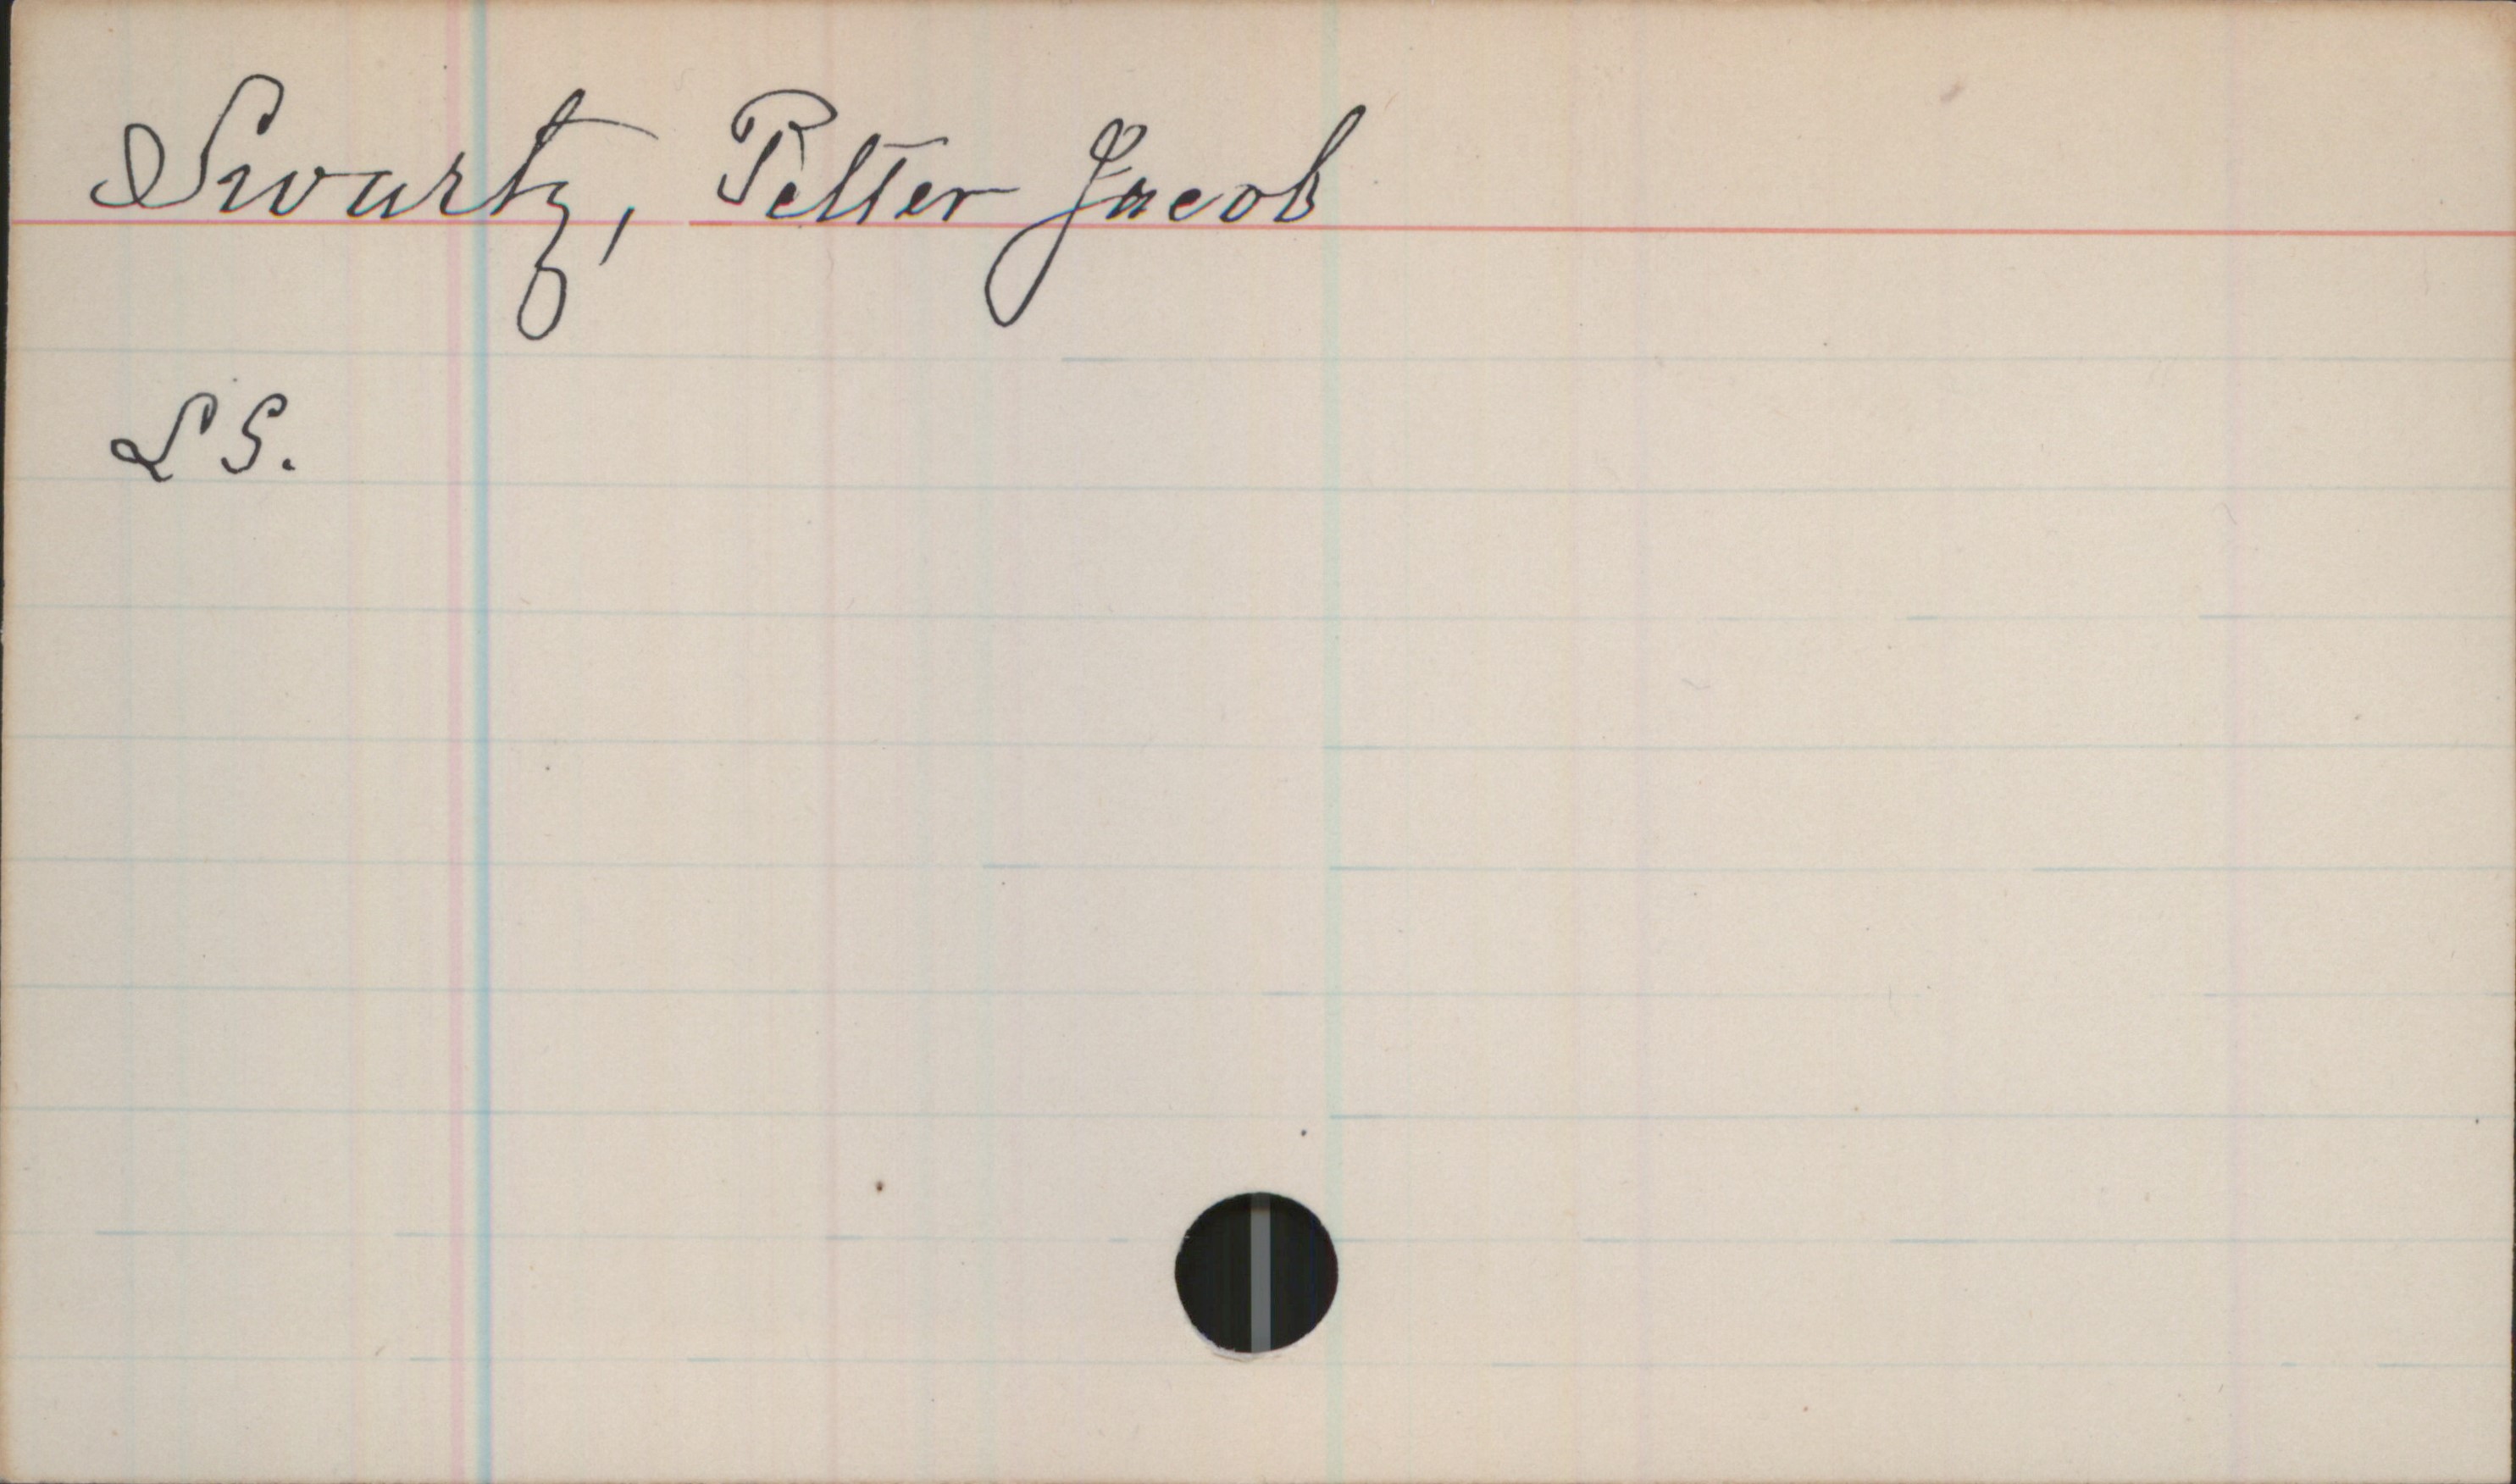 Swartz, Petter Jacob
L S.